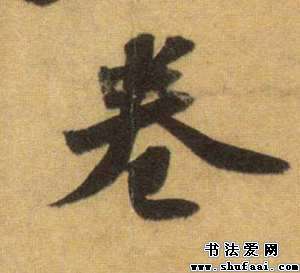 卷
书法爱网
www.shufaai.com